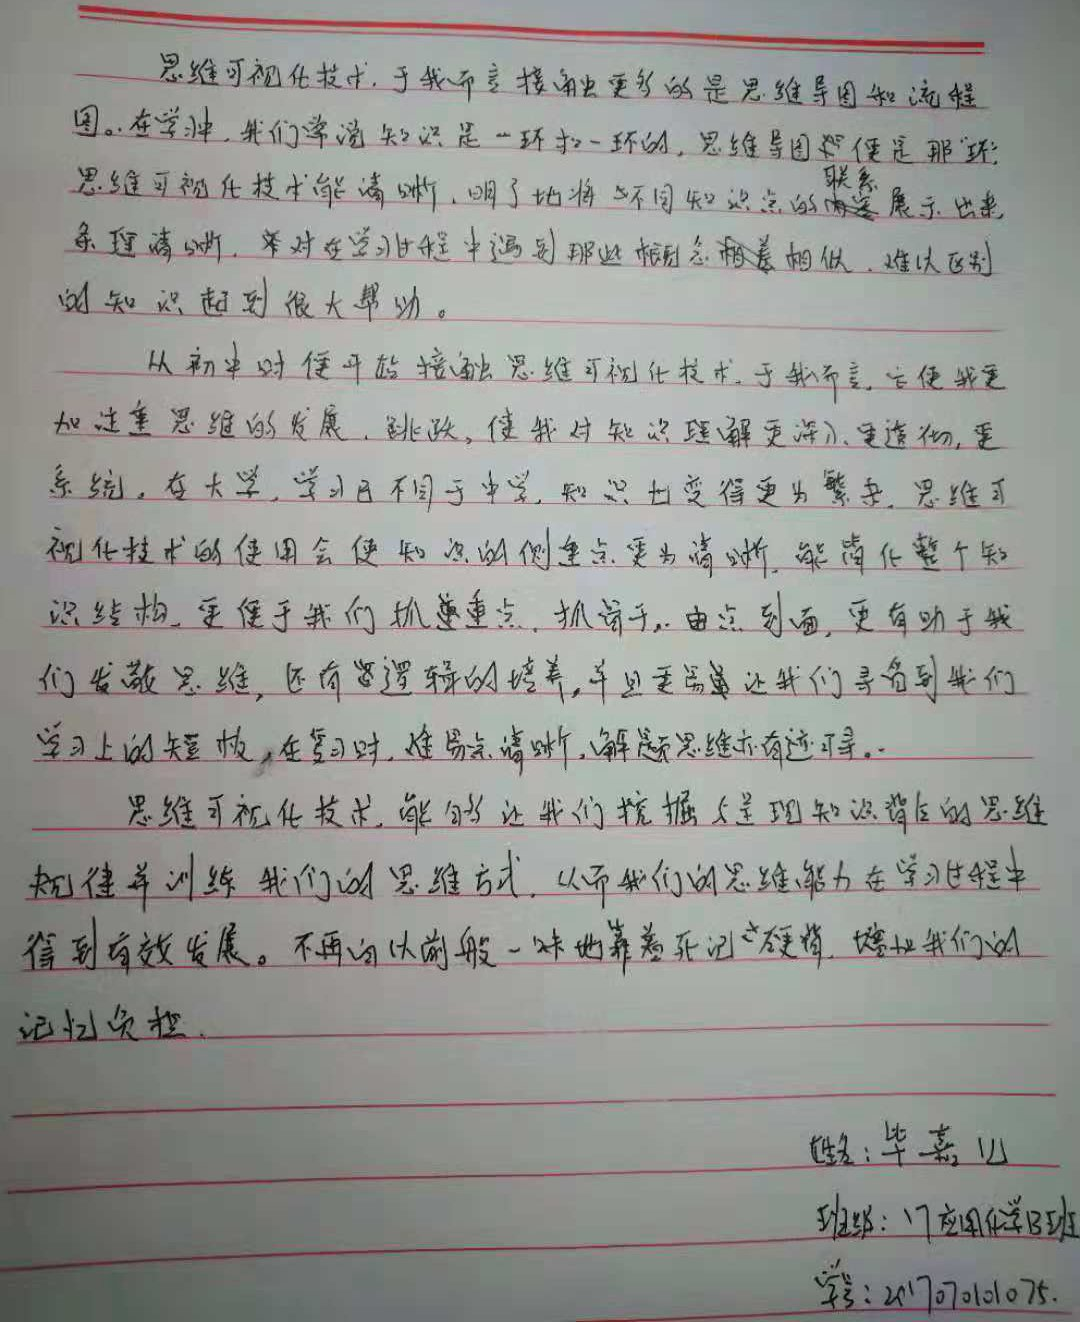 思维可视化技术，于我而言接触更多的是思维导图和流程
图。在学习中，我们常说知识是一环扣一环的，思维导图便是那"环"，
思维可视化技术能清晰、明了地将不同知识点的联系展示出来，
条理清晰，并对在学习过程中遇到那些概念相似、难以区别
的知识起到很大帮助。
从初中时便开始接触思维可视化技术，于我而言，它使我更
加注重思维的发展、跳跃，使我对知识理解更深入、更透彻，更
系统。在大学，学习已不同于中学，知识也变得更为繁杂，思维可
视化技术的使用会使知识的侧重点更为清晰，能简化整个知
识结构，更便于我们抓重点、抓骨干。由点到面，更有助于我
们发散思维，还有逻辑的培养，并且更易让我们寻每到我们
学习上的短板，在复习时，难易点清晰，解题思维亦有迹可寻。
思维可视化技术，能够让我们挖掘与呈现知识背后的思维
规律并训练我们的思维方式，从而我们的思维能力在学习过程中
得到有效发展。不再向以前般一味地靠着死记硬背，增加我们的
记忆负担。
姓名：毕嘉
班级：17应用化学B班
学号：201707010107​5.